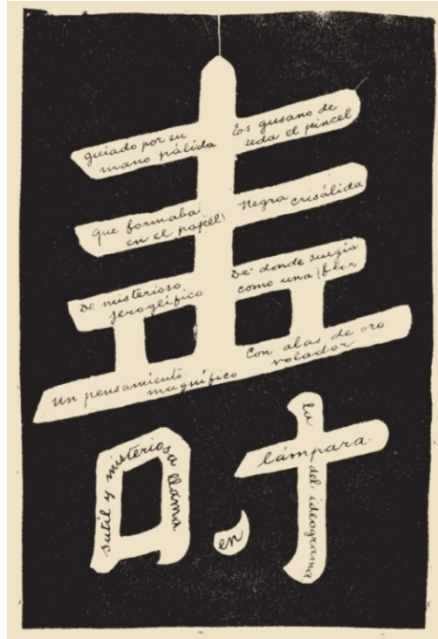 Es gusano de
seda el pincel
guiado por su
mano pálida
que formaba
en el papel
Negra crisálida
De misterioso
jeroglífico
De donde surgía
como una flor
Un pensamiento
magnífico
Con alas de oro
volador
sutil y misteriosa llama
en
la
lámpara
del ideograma